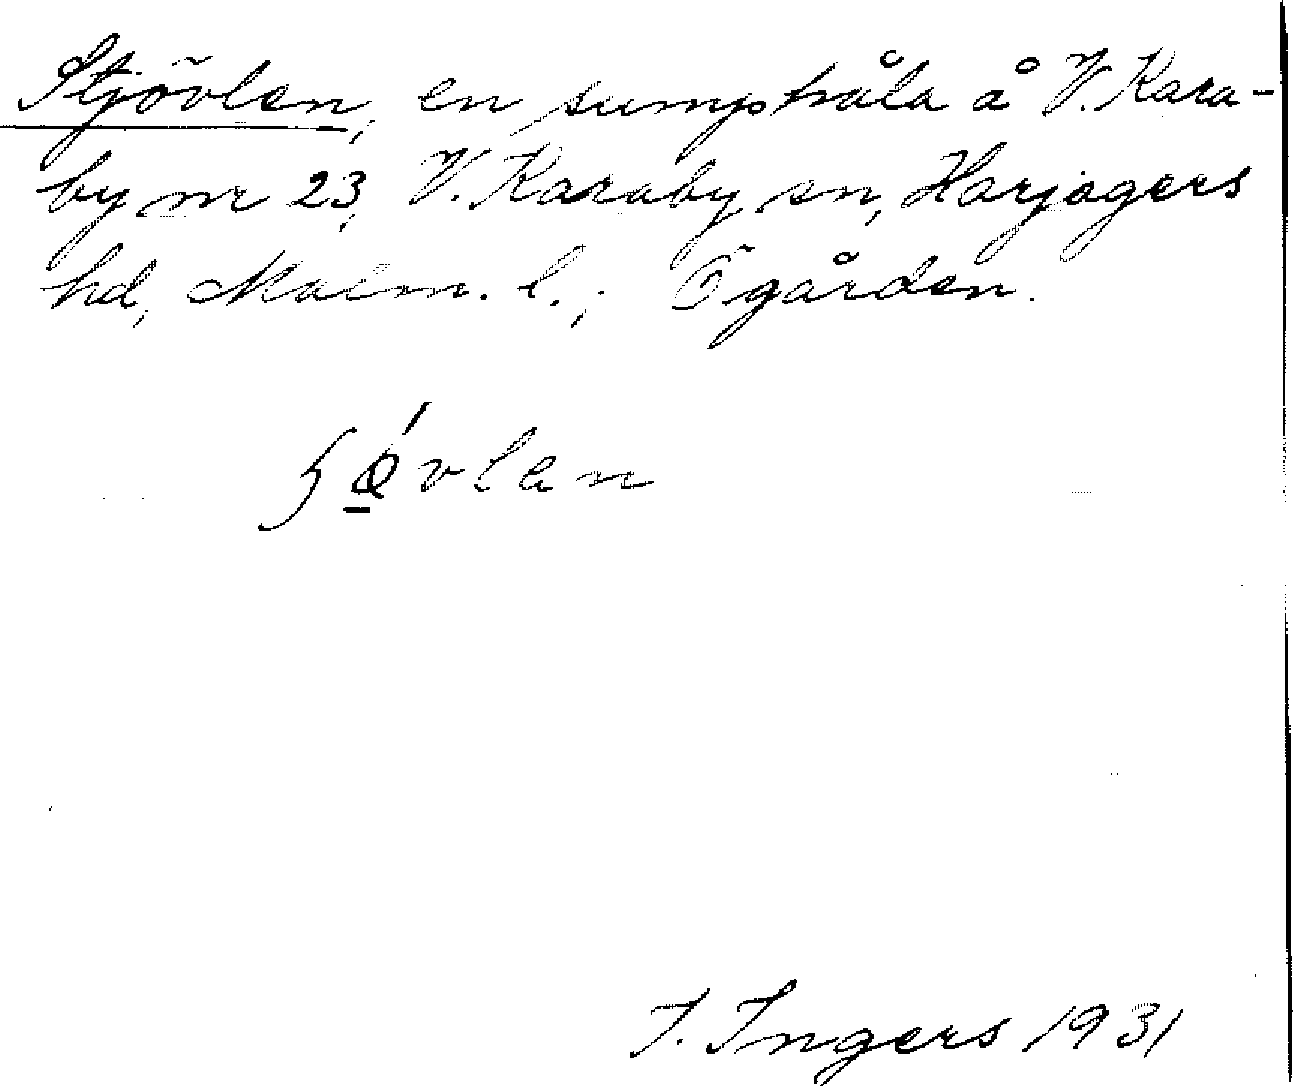 Stjövlen, en sumphåla å V. Kara-
by nr 23, V. Karaby sn, Harjagers
hd, Malm. l.; Ögården.
ʃǿvlen
I. Ingers 1931